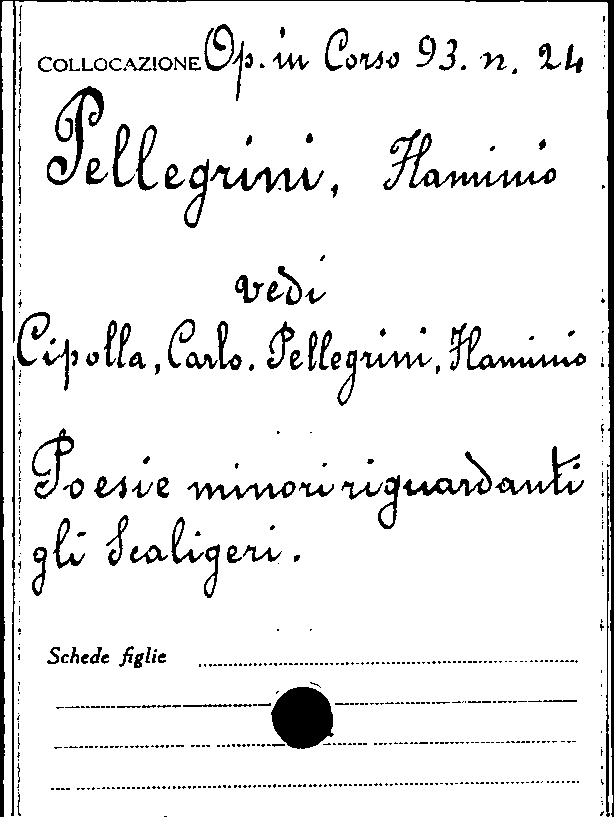 COLLOCAZIONE Op. in Corso 93. n. 24
Pellegrini, Flaminio
vedi
Cipolla, Carlo. Pellegrini, Flaminio
Poesie minori riguardanti
gli Scaligeri.
Schede figlie